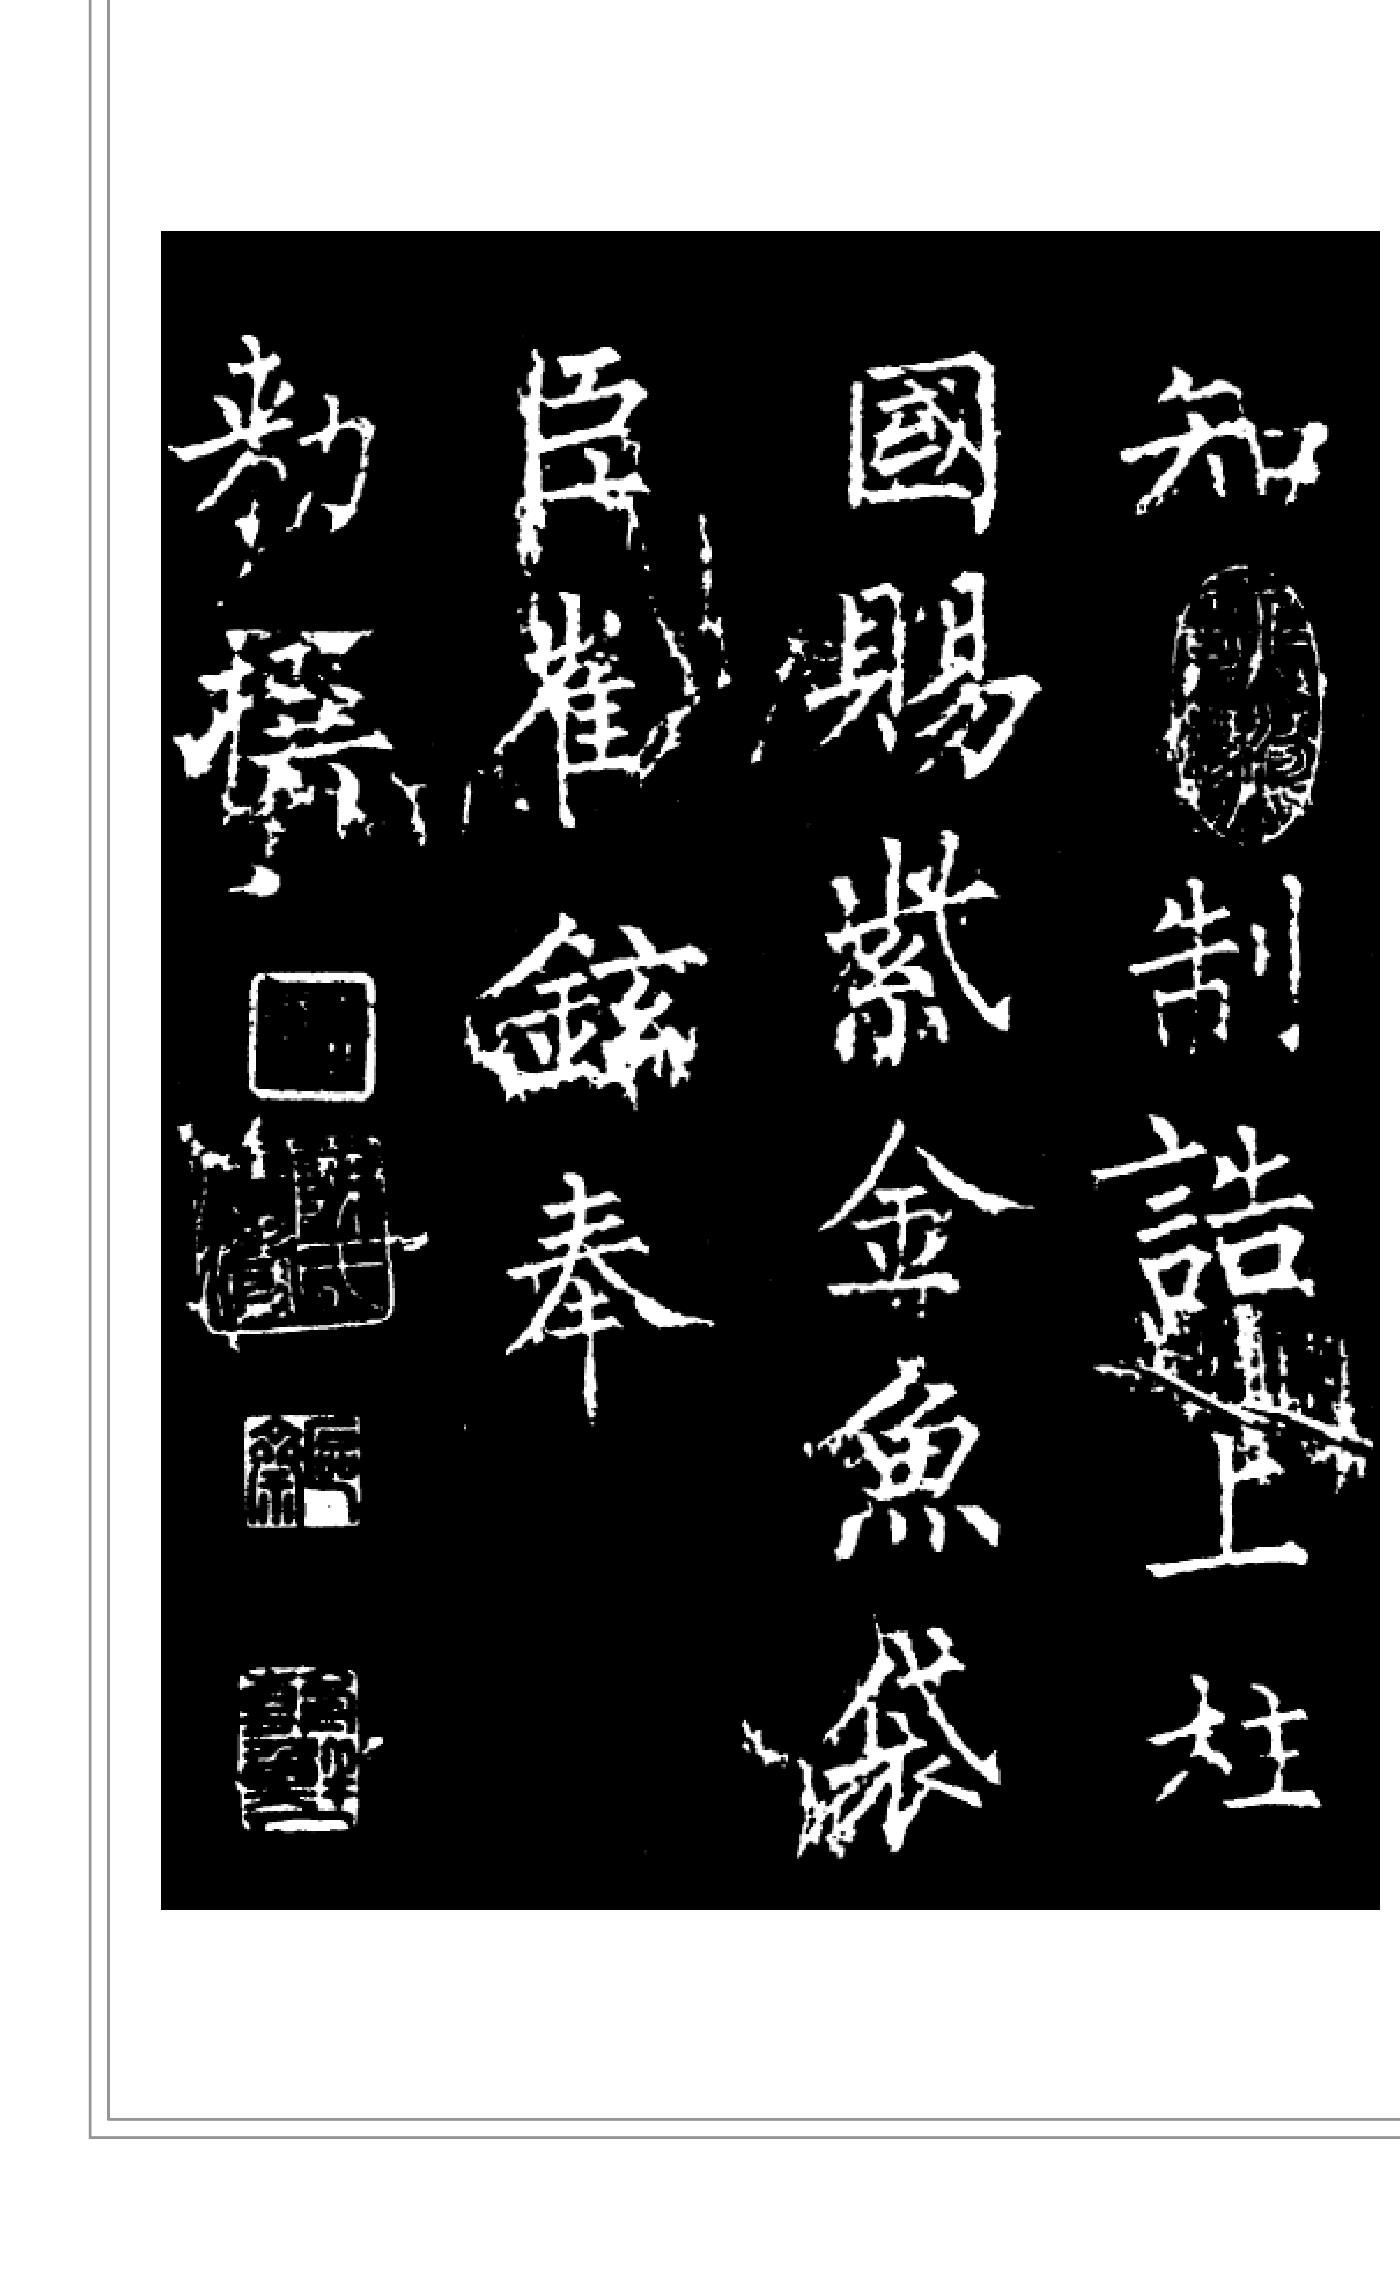 知制誥上柱
國賜紫金魚袋
臣崔鉉奉
勑撰